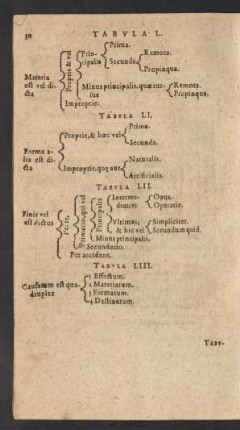 30 TABVLA L.
Prima.
Prin- Remota.
cipalis Secunda
Propinqua.
Materia Proprie & vel
est vel di- Minus principalis, quæ rur- Remota.
cta sus Propinqua.
Improprie.
TABVLA LI.
Prima.
Proprie, & hæc vel
Secunda.
Forma a-
lia est di- Naturalis.
cta Improprie, quæ aut
Artificialis.
TABVLA LII.
Interme- Opus.
dius: et Operatio.
Finis vel Per se, Principalis
est dictus Vltimus; Simpliciter.
& hic vel Secundum quid.
Minus principalis.
Secundario.
Per accidens.
TABVLA LIII.
1 Effectum.
Causarum est qua- 2 Materiarum.
druplex 3 Formarum.
4 Destinarum.
TABV-